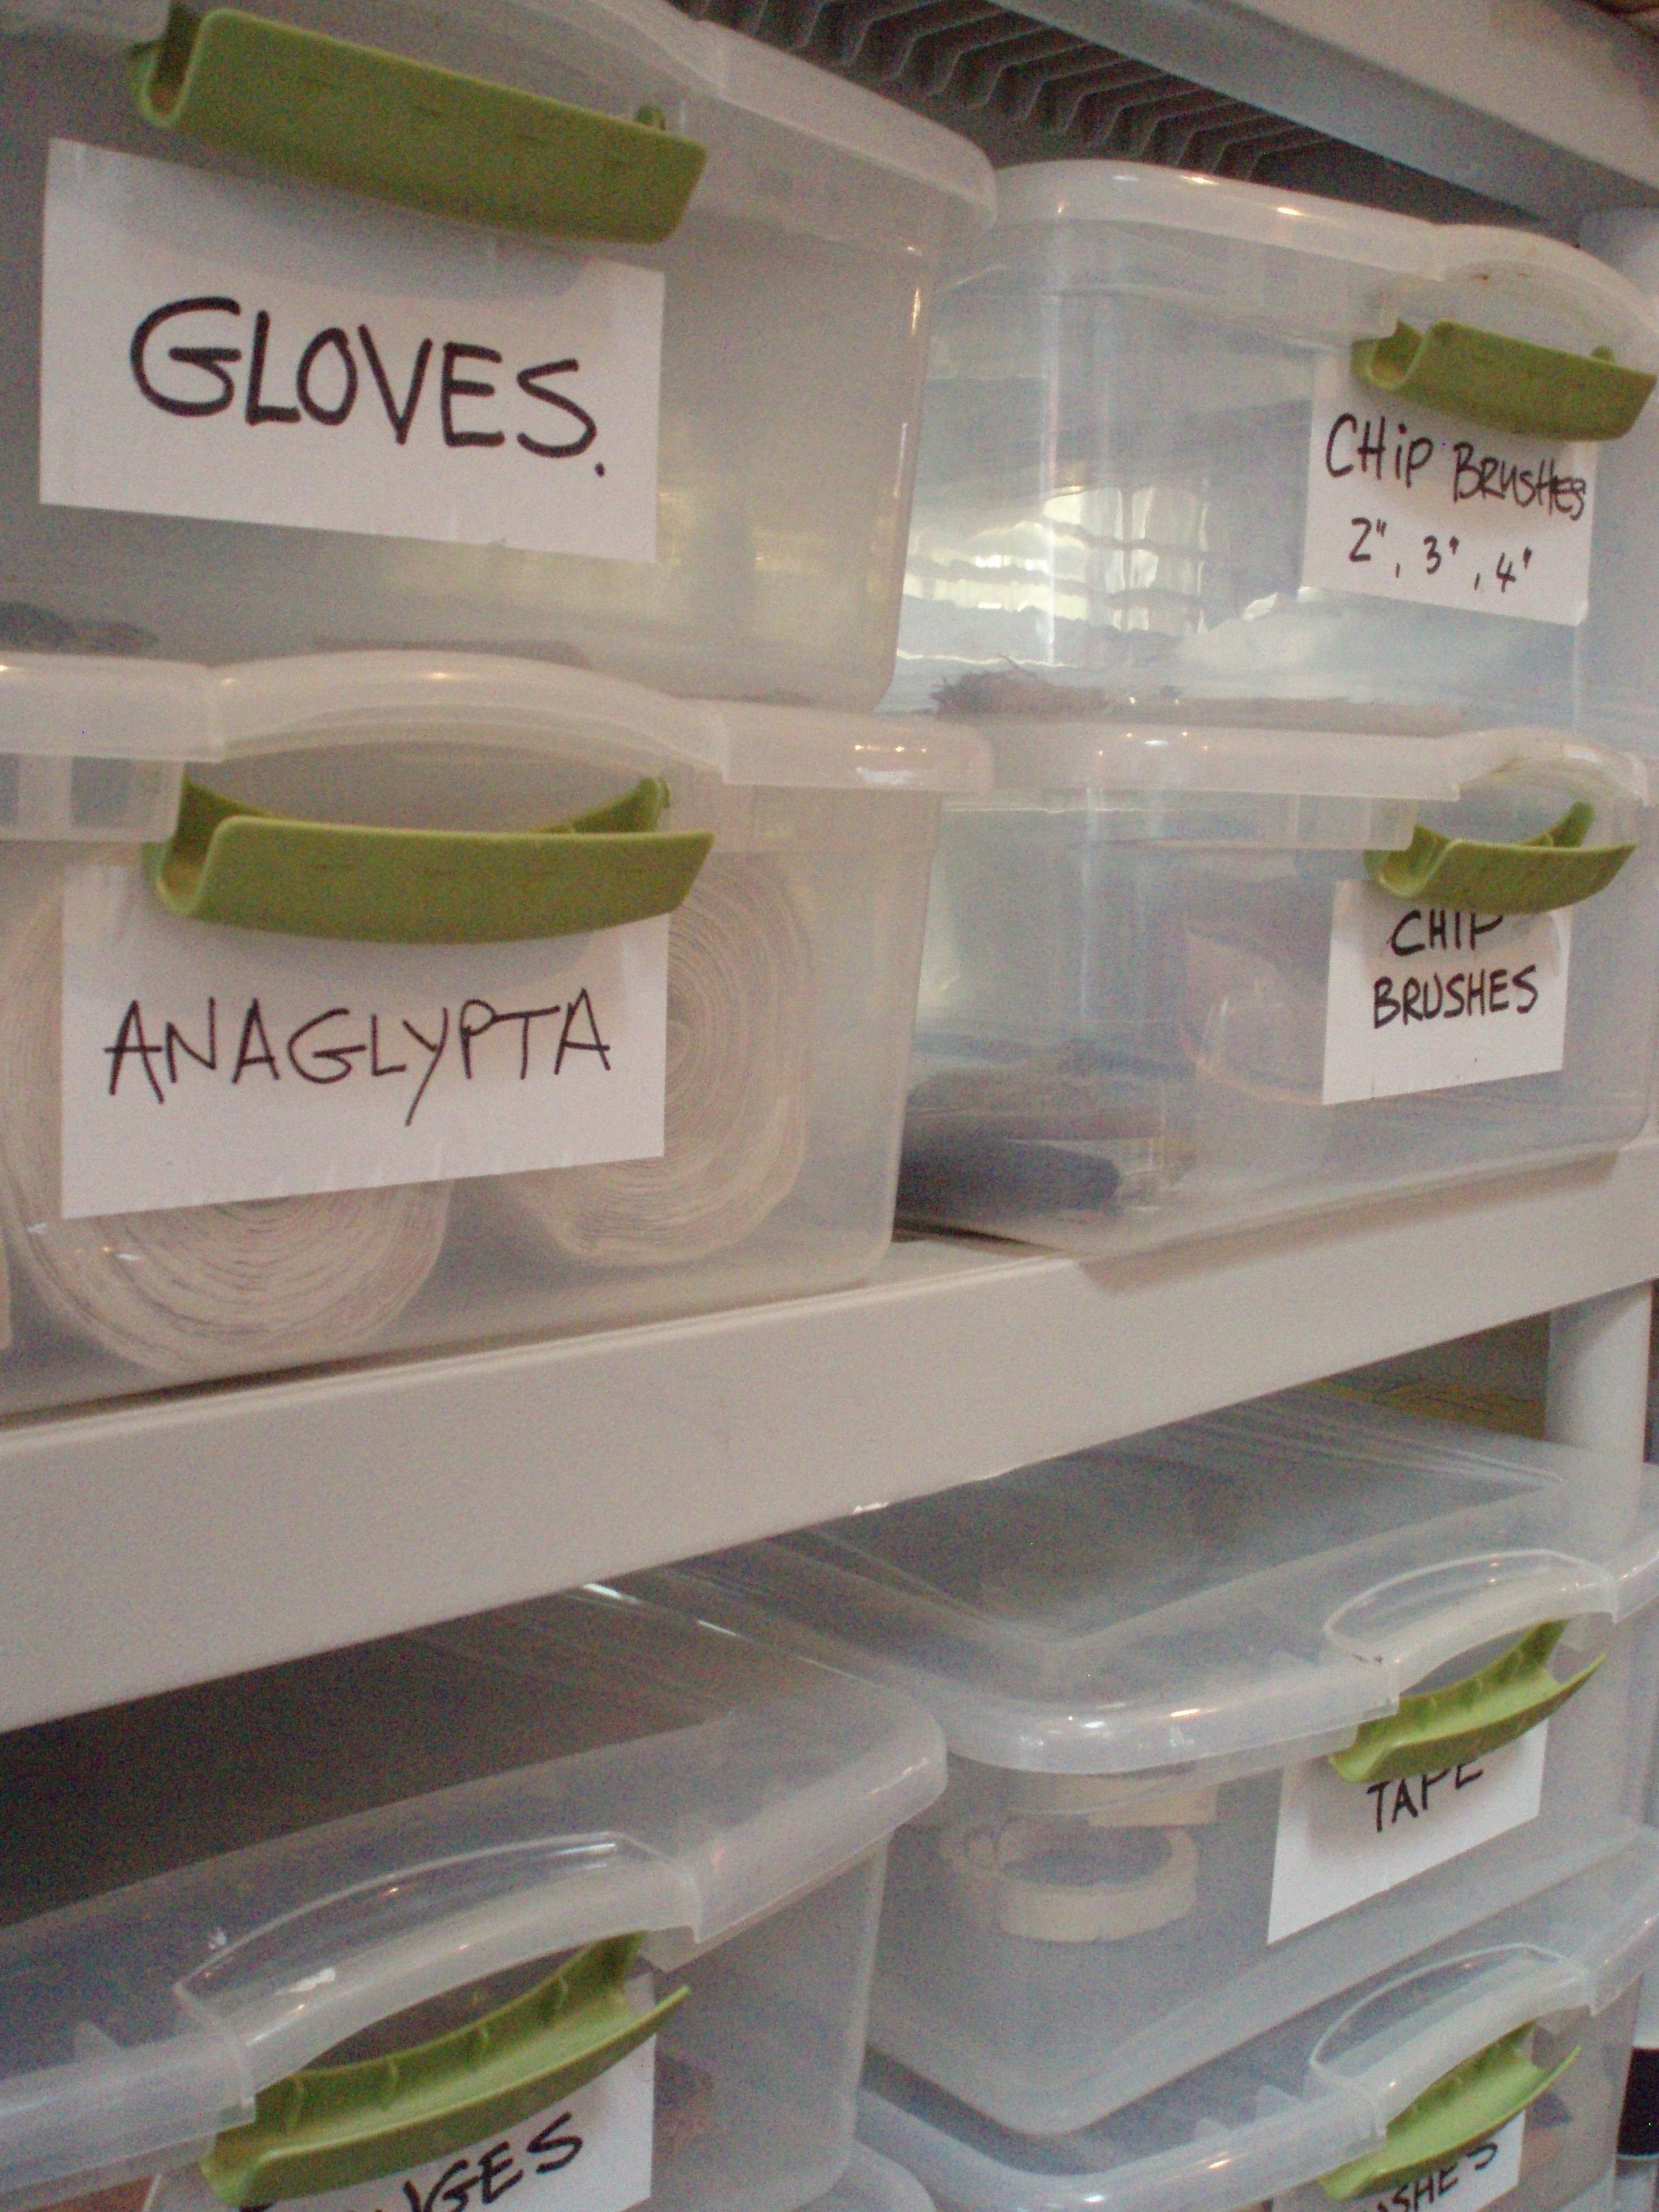 GLOVES.
CHIP BRUSHES
2", 3", 4"
ANAGLYPTA
CHIP
BRUSHES
TAPE